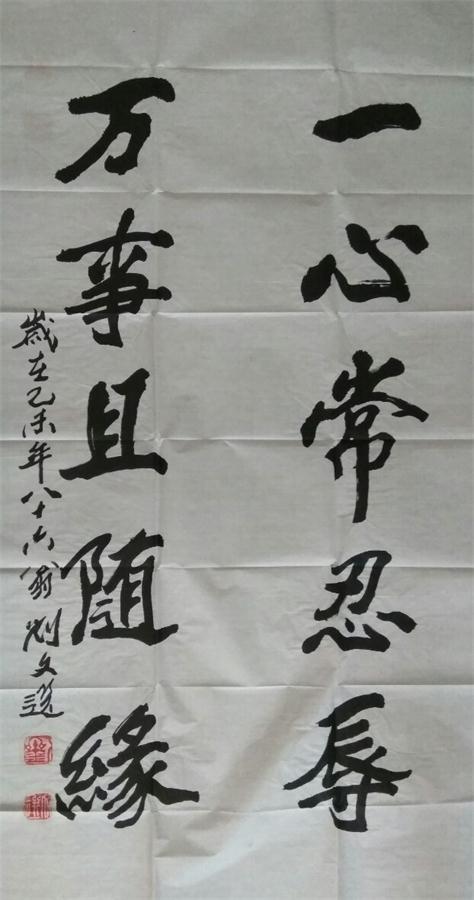 一心常忍辱
万事且随緣
歲在乙未年八十六翁刘文選